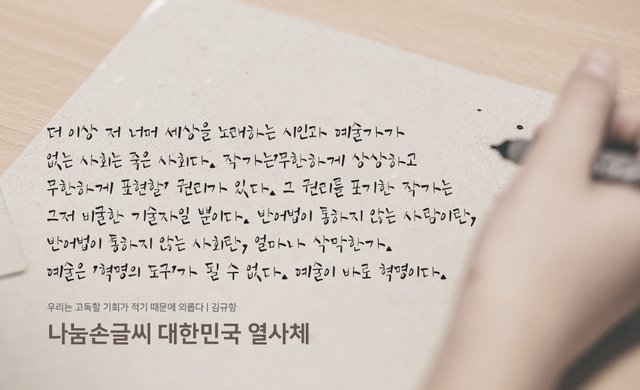 더 이상 저 너머 세상을 노래하는 시인과 예술가가
없는 사회는 죽은 사회다. 작가는'무한하게 상상하고
무한하게 표현할' 권리가 있다. 그 권리를 포기한 작가는
그저 비굴한 기술자일 뿐이다. 반어법이 통하지 않는 사람이란,
반어법이 통하지 않는 사회란, 얼마나 삭막한가.
예술은 '혁명의 도구'가 될 수 없다. 예술이 바로 혁명이다.
우리는 고독할 기회가 적기 때문에 외롭다 | 김규항
나눔손글씨 대한민국 열사체